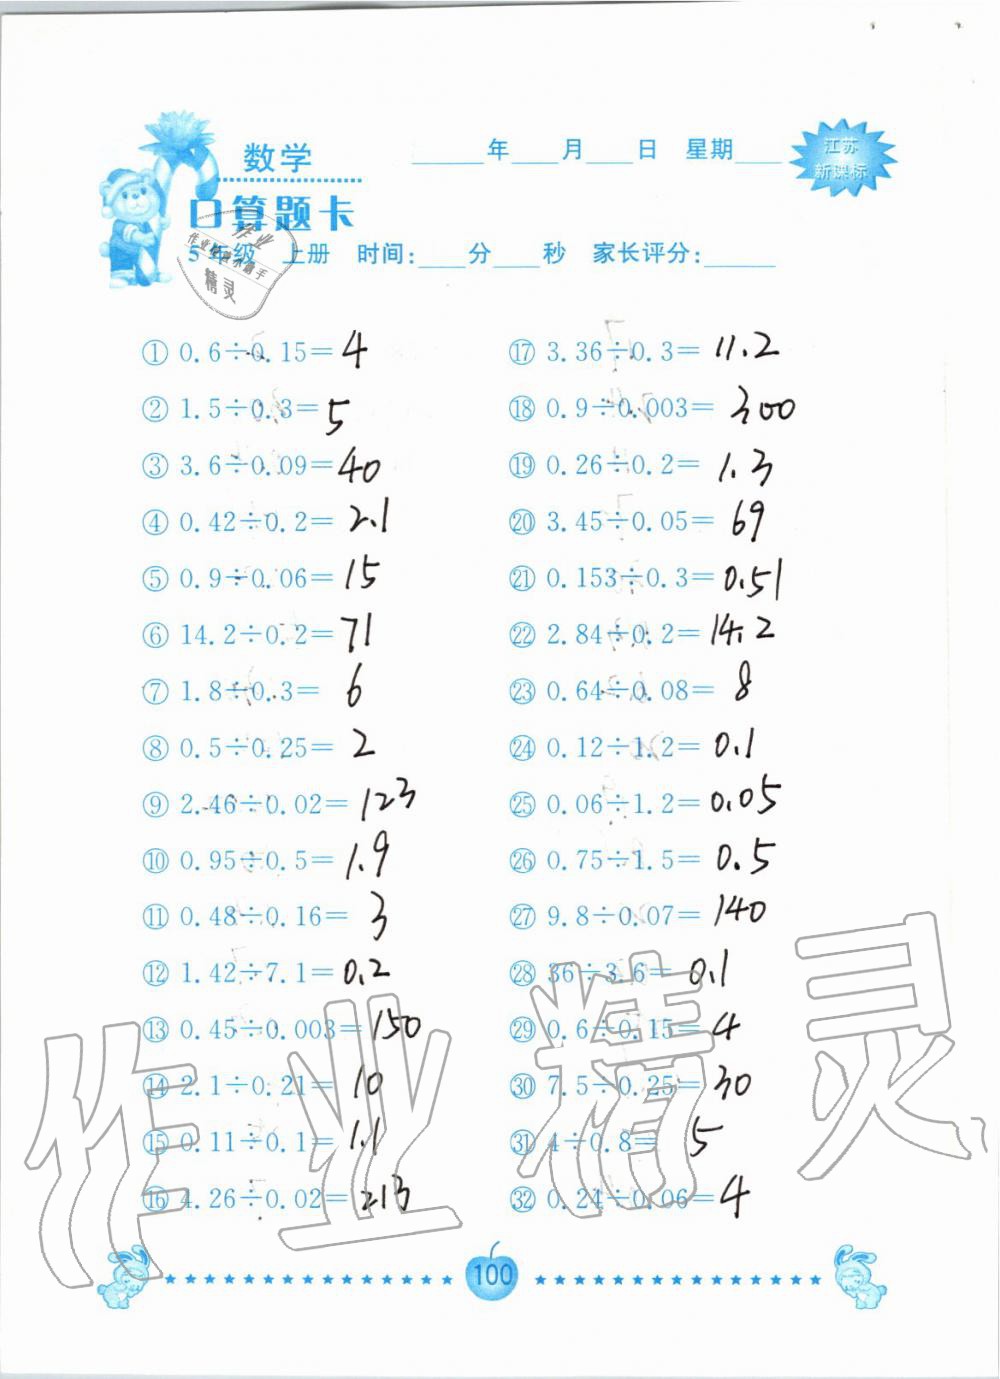 数学
____年____月____日 星期____
江苏
新课标
口算题卡
5年级 上册 时间:____分____秒 家长评分:______
作业
精灵
① 0.6÷0.15=4
② 1.5÷0.3=5
③ 3.6÷0.09=40
④ 0.42÷0.2=2.1
⑤ 0.9÷0.06=15
⑥ 14.2÷0.2=71
⑦ 1.8÷0.3=6
⑧ 0.5÷0.25=2
⑨ 2.46÷0.02=123
⑩ 0.95÷0.5=1.9
⑪ 0.48÷0.16=3
⑫ 1.42÷7.1=0.2
⑬ 0.45÷0.003=150
⑭ 2.1÷0.21=10
⑮ 0.11÷0.1=1.1
⑯ 4.26÷0.02=213
⑰ 3.36÷0.3=11.2
⑱ 0.9÷0.003=300
⑲ 0.26÷0.2=1.3
⑳ 3.45÷0.05=69
㉑ 0.153÷0.3=0.51
㉒ 2.84÷0.2=14.2
㉓ 0.64÷0.08=8
㉔ 0.12÷1.2=0.1
㉕ 0.06÷1.2=0.05
㉖ 0.75÷1.5=0.5
㉗ 9.8÷0.07=140
㉘ 36÷3.6=0.1
㉙ 0.6÷0.15=4
㉚ 7.5÷0.25=30
㉛ 4÷0.8=5
㉜ 0.24÷0.06=4
作业精灵
100